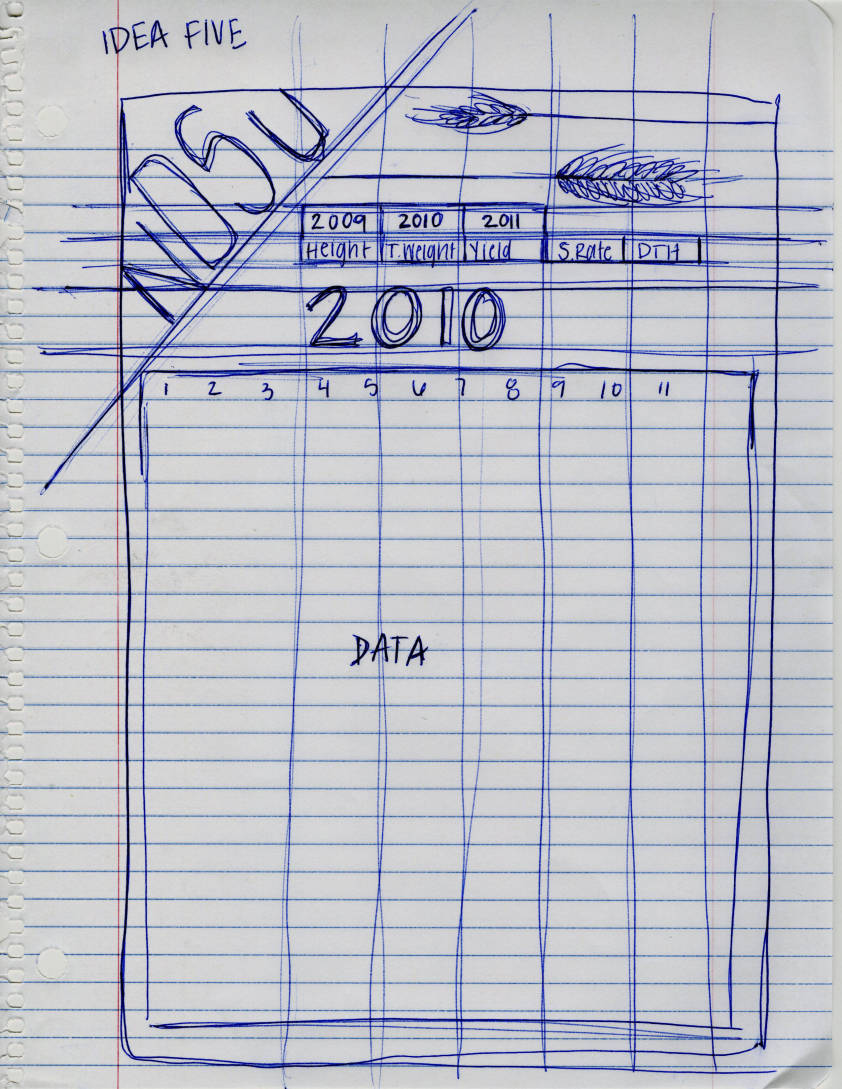 IDEA FIVE
NDSU
2009 2010 2011
Height T.Weight Yield S.Rate DTH
2010
1 2 3 4 5 6 7 8 9 10 11
DATA